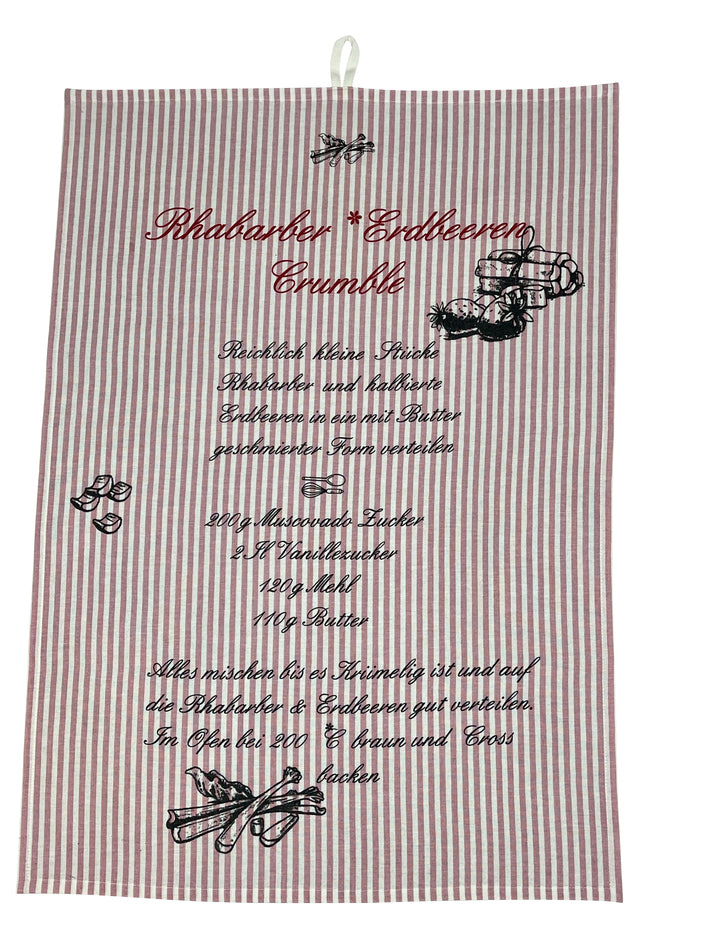 Rhabarber *Erdbeeren
Crumble
Reichlich kleine Stücke
Rhabarber und halbierte
Erdbeeren in ein mit Butter
geschmierter Form verteilen
200g Muscovado Zucker
2 Il Vanillezucker
120g Mehl
110g Butter
Alles mischen bis es Krümelig ist und auf
die Rhabarber & Erdbeeren gut verteilen.
Im Ofen bei 200 *C braun und Cross
backen